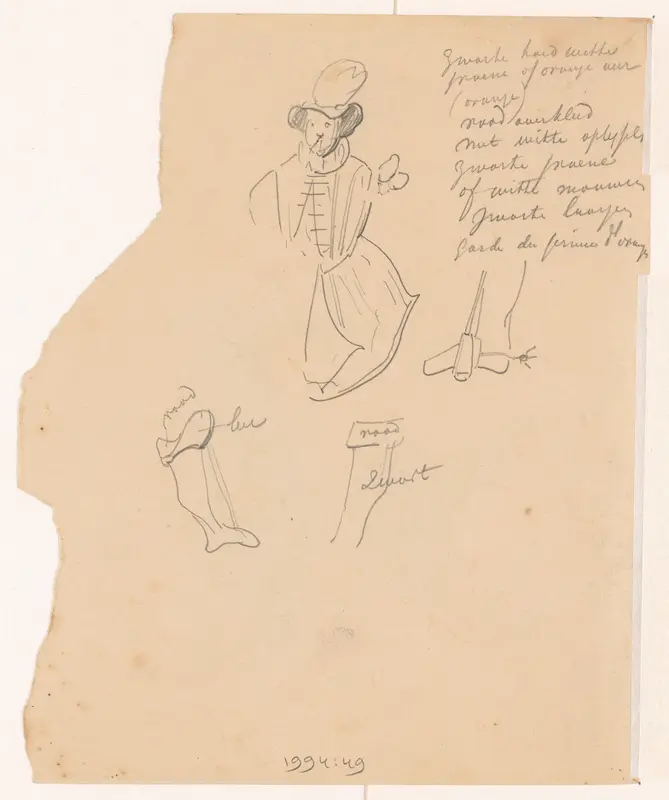 zwarte hoed witte
of oranje
(oranje)
rood overkleed
met witte
zwarte
of witte mouwen
zwarte
Garde du prince d'orange
rood
leer
rood
Zwart
1994:49